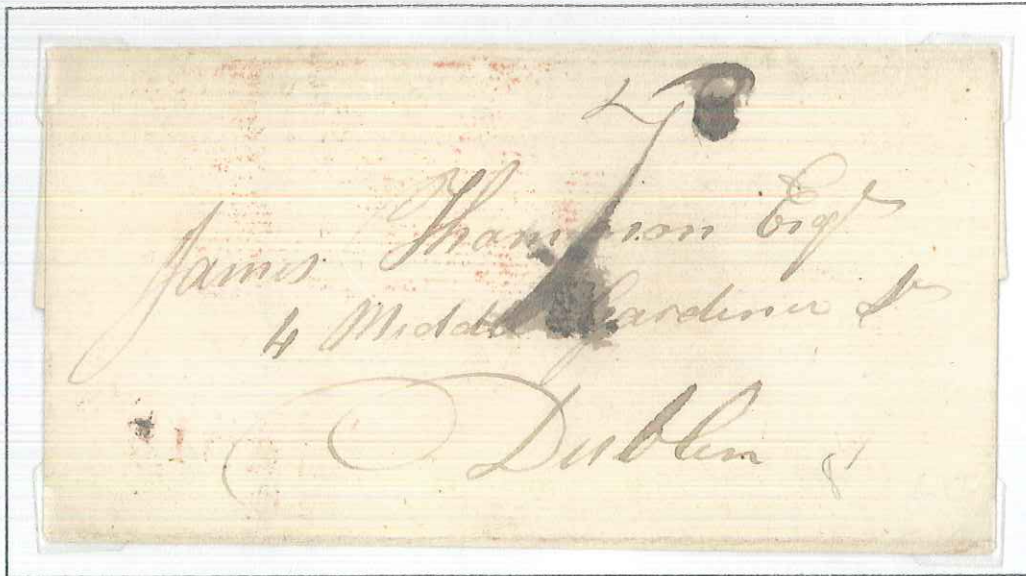 James Thompson Esqr
4 Middle Gardiner St
Dublin